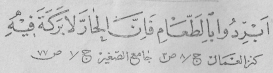 اَبْرِدُوا بِالطَّعَامِ فَاِنَّ الْحَارَّ لَا بَرَكَةَ فِيْهِ
كنز العمال ج ٨ ص ٢ جامع الصغير ج ١ ص ٧٧